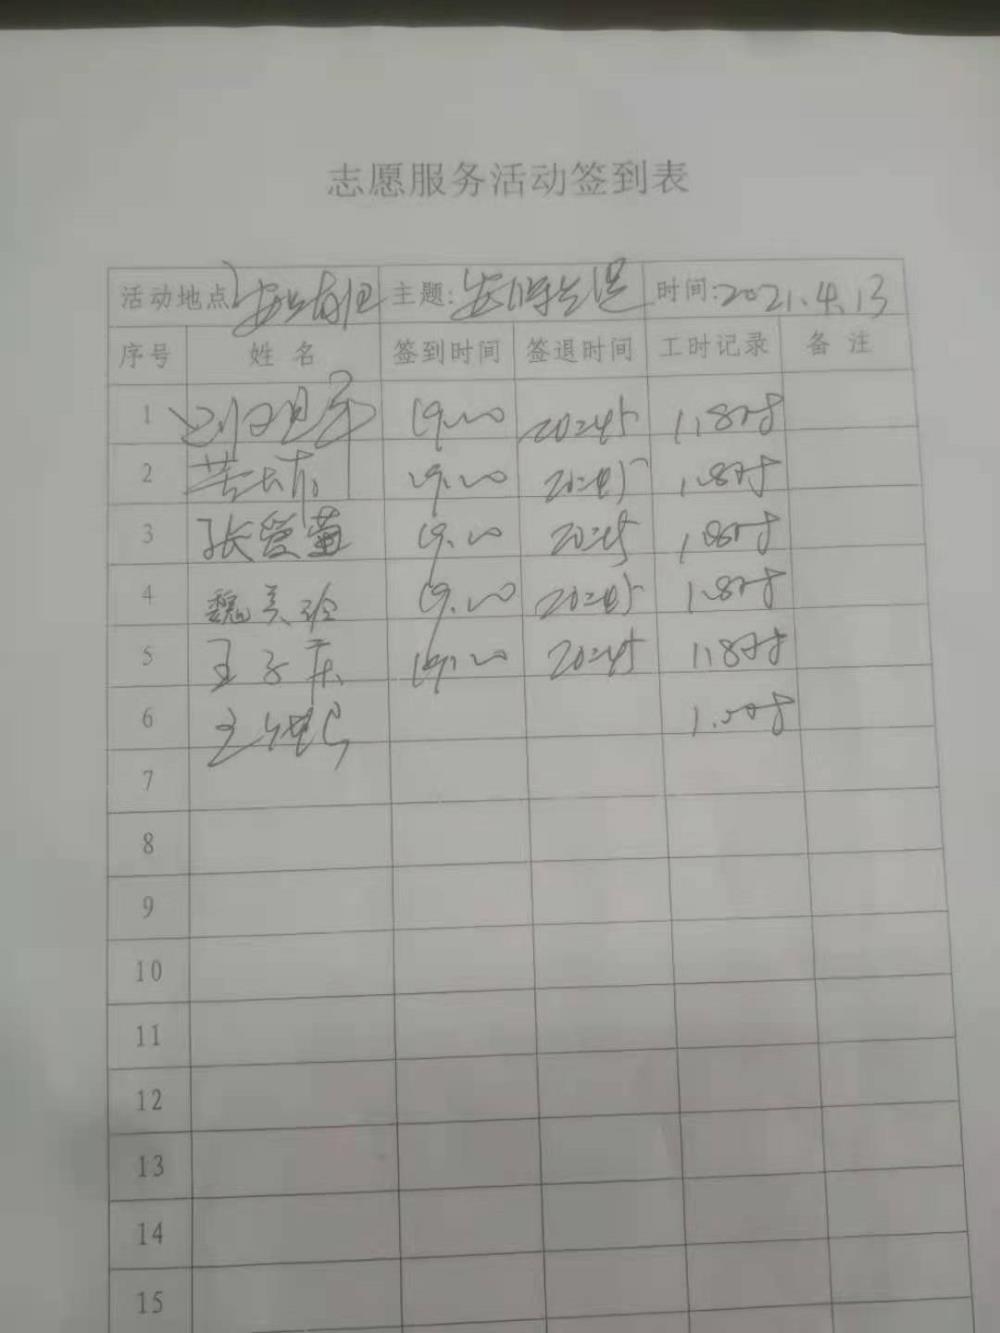 志愿服务活动签到表
活动地点 主题: 时间:2021.4.13
序号 姓名 签到时间 签退时间 工时记录 备注
1 19.00 20:45 1.8时
2 19.00 20:45 1.8时
3 张爱菊 19.00 20:45 1.8时
4 魏美玲 19.00 20:45 1.8时
5 王子庆 19.00 20:45 1.8时
6 王 时
7
8
9
10
11
12
13
14
15